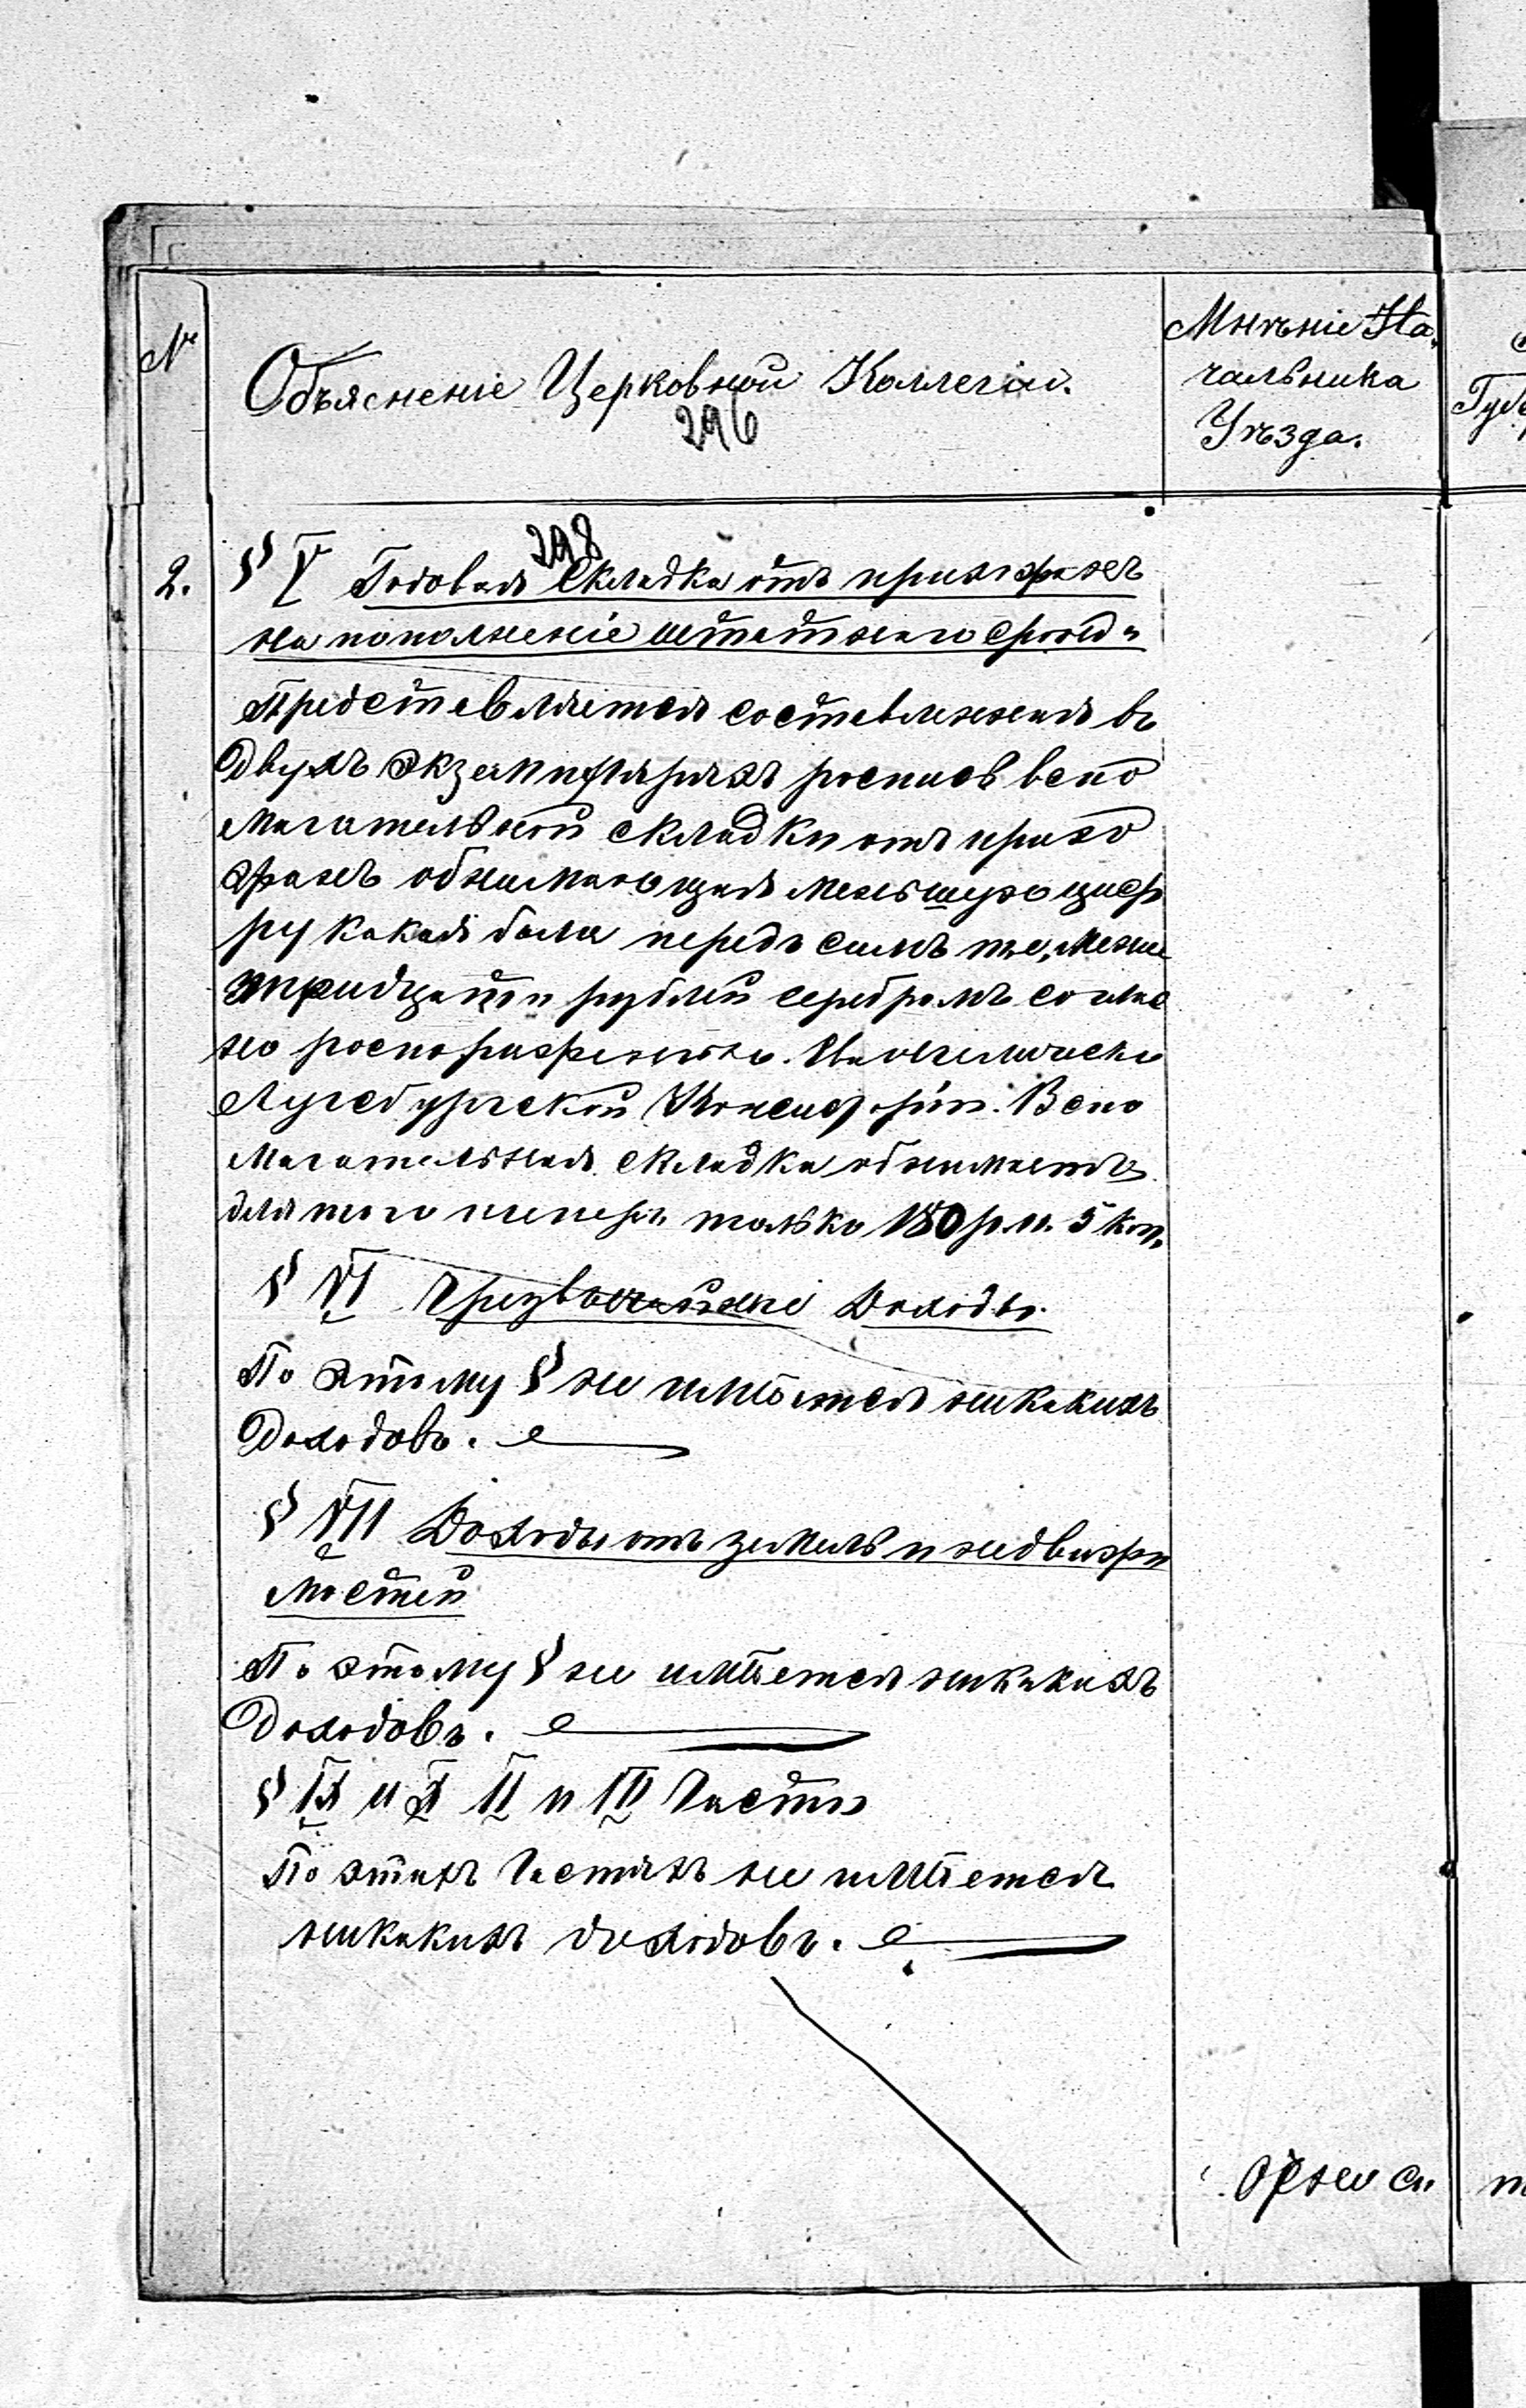 №
Объясненіе Церковной Коллегіи.
296
Мнѣніе На-
чальника
Уѣзда.
298
2. § V Годовая Складка отъ прихожанъ
на пополненіе штатнаго фонда
Представляется составленная въ
двухъ экземплярахъ роспись вспо
могательной складки отъ прихо
жанъ обнимающая меньшую циф
ру какая была передъ симъ т.е.
тридцати рублей серебромъ соглас
но роспоряженію Евангелическо
Аугсбургской Консисторіи. Вспо
могательная складка обнимаетъ
для того теперь только 180 р. и 5 коп.
§ VI Чрезвычайные Доходы.
По этому § не имѣется никакихъ
Доходовъ.
§ VII Доходы отъ земель и недвижи
мостей
По этому § не имѣется никакихъ
Доходовъ.
§ IX и X II и III Части
По этихъ Частяхъ не имѣется
никакихъ доходовъ.